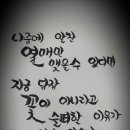 나중에 만일
열매만
맺을수 있다면
지금 당장
꽃이 아니라고
슬퍼할 이유가